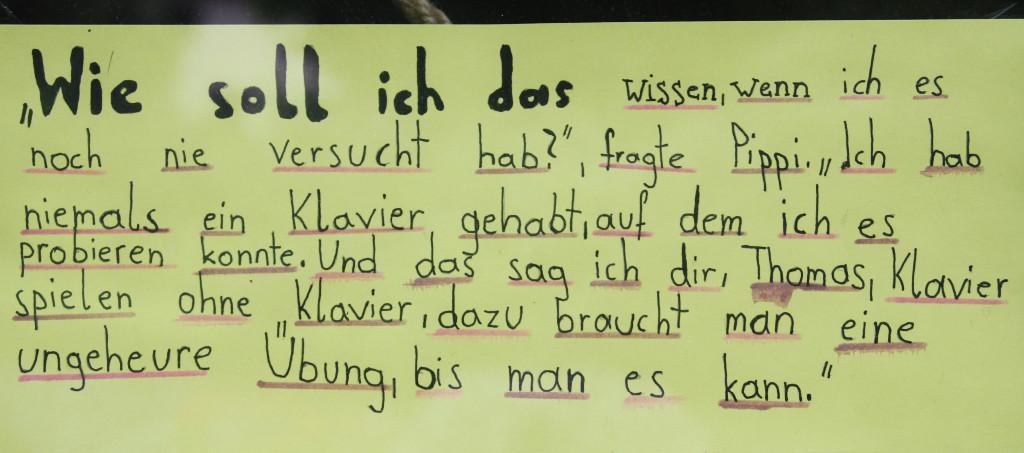 „Wie soll ich das wissen, wenn ich es
noch nie versucht hab?", fragte Pippi. „Ich hab
niemals ein Klavier gehabt, auf dem ich es
probieren konnte. Und das sag ich dir, Thomas, Klavier
spielen ohne Klavier, dazu braucht man eine
ungeheure Übung, bis man es kann."